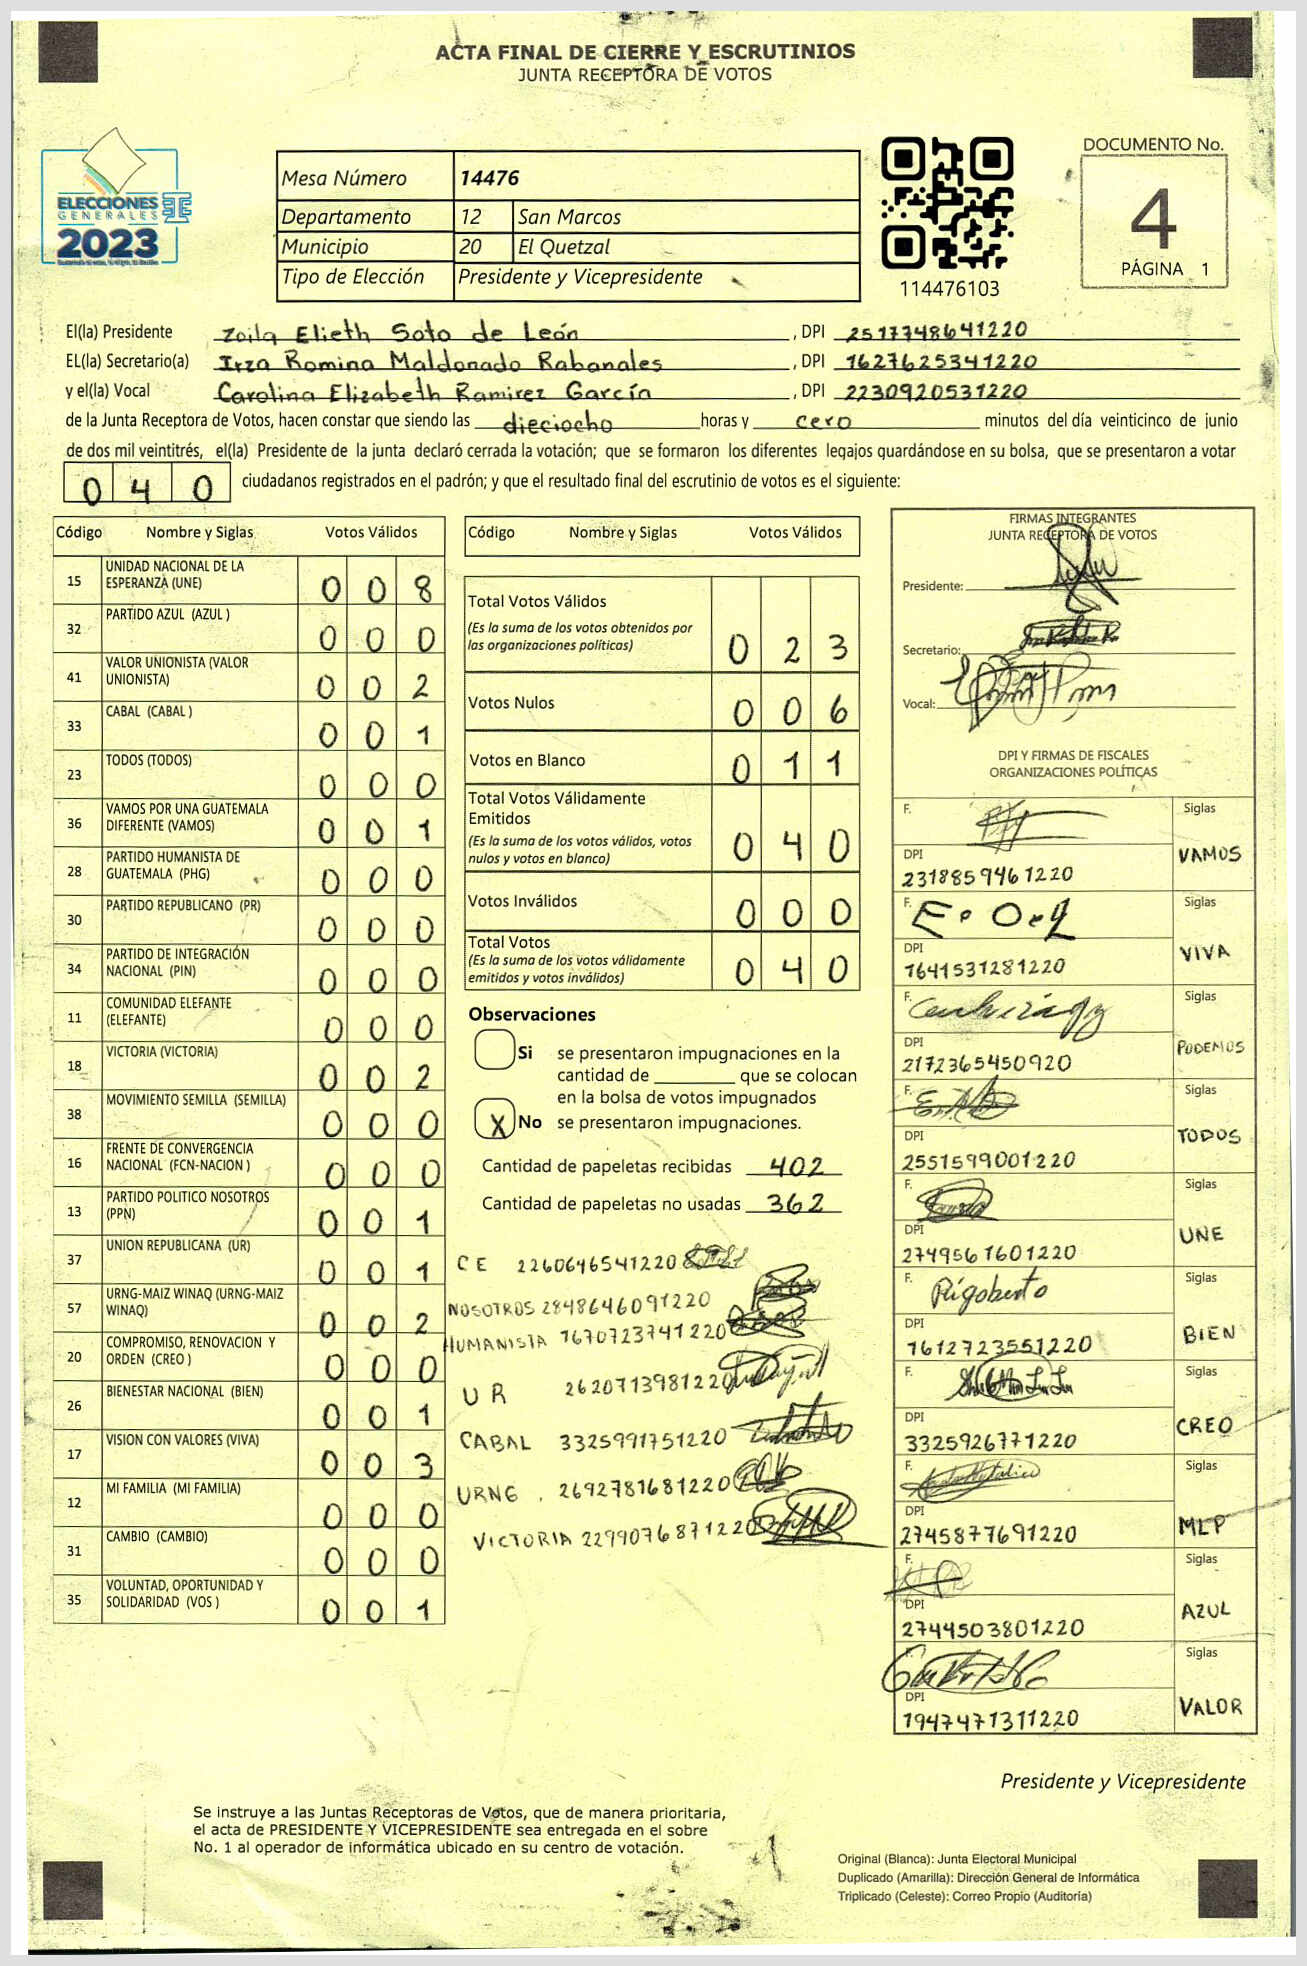 ACTA FINAL DE CIERRE Y ESCRUTINIOS
JUNTA RECEPTORA DE VOTOS
ELECCIONES
GENERALES
2023
Mesa Número 14476
Departamento 12 San Marcos
Municipio 20 El Quetzal
Tipo de Elección Presidente y Vicepresidente
114476103
DOCUMENTO No.
4
PÁGINA 1
El(la) Presidente Zoila Elieth Soto de León , DPI 2517748641220
EL(la) Secretario(a) Irza Romina Maldonado Rabanales , DPI 1627625341220
y el(la) Vocal Carolina Elizabeth Ramirez García , DPI 2230920531220
de la Junta Receptora de Votos, hacen constar que siendo las dieciocho horas y cero minutos del día veinticinco de junio
de dos mil veintitrés, el(la) Presidente de la junta declaró cerrada la votación; que se formaron los diferentes legajos guardándose en su bolsa, que se presentaron a votar
0 4 0 ciudadanos registrados en el padrón; y que el resultado final del escrutinio de votos es el siguiente:
Código Nombre y Siglas Votos Válidos
15 UNIDAD NACIONAL DE LA
ESPERANZA (UNE) 0 0 8
32 PARTIDO AZUL (AZUL ) 0 0 0
41 VALOR UNIONISTA (VALOR
UNIONISTA) 0 0 2
33 CABAL (CABAL ) 0 0 1
23 TODOS (TODOS) 0 0 0
36 VAMOS POR UNA GUATEMALA
DIFERENTE (VAMOS) 0 0 1
28 PARTIDO HUMANISTA DE
GUATEMALA (PHG) 0 0 0
30 PARTIDO REPUBLICANO (PR) 0 0 0
34 PARTIDO DE INTEGRACIÓN
NACIONAL (PIN) 0 0 0
11 COMUNIDAD ELEFANTE
(ELEFANTE) 0 0 0
18 VICTORIA (VICTORIA) 0 0 2
38 MOVIMIENTO SEMILLA (SEMILLA) 0 0 0
16 FRENTE DE CONVERGENCIA
NACIONAL (FCN-NACION ) 0 0 0
13 PARTIDO POLITICO NOSOTROS
(PPN) 0 0 1
37 UNION REPUBLICANA (UR) 0 0 1
57 URNG-MAIZ WINAQ (URNG-MAIZ
WINAQ) 0 0 2
20 COMPROMISO, RENOVACION Y
ORDEN (CREO ) 0 0 0
26 BIENESTAR NACIONAL (BIEN) 0 0 1
17 VISION CON VALORES (VIVA) 0 0 3
12 MI FAMILIA (MI FAMILIA) 0 0 0
31 CAMBIO (CAMBIO) 0 0 0
35 VOLUNTAD, OPORTUNIDAD Y
SOLIDARIDAD (VOS ) 0 0 1
Código Nombre y Siglas Votos Válidos
Total Votos Válidos
(Es la suma de los votos obtenidos por
las organizaciones politicas) 0 2 3
Votos Nulos 0 0 6
Votos en Blanco 0 1 1
Total Votos Válidamente
Emitidos
(Es la suma de los votos válidos, votos
nulos y votos en blanco) 0 4 0
Votos Inválidos 0 0 0
Total Votos
(Es la suma de los votos válidamente
emitidos y votos inválidos) 0 4 0
Observaciones
Si se presentaron impugnaciones en la
cantidad de ________ que se colocan
en la bolsa de votos impugnados
X No se presentaron impugnaciones.
Cantidad de papeletas recibidas 402
Cantidad de papeletas no usadas 362
CE 2260646541220
NOSOTROS 2848646091220
HUMANISTA 1670723741220
UR 2620713981220
CABAL 3325991751220
URNG . 2692781681220
VICTORIA 2299076871220
FIRMAS INTEGRANTES
JUNTA RECEPTORA DE VOTOS
Presidente:
Secretario:
Vocal:
DPI Y FIRMAS DE FISCALES
ORGANIZACIONES POLÍTICAS
F. Siglas
DPI VAMOS
2318859461220
F. Siglas
DPI VIVA
1641531281220
F. Siglas
DPI PODEMOS
2172365450920
F. Siglas
DPI TODOS
2551599001220
F. Siglas
DPI UNE
2749561601220
F. Rigoberto Siglas
DPI BIEN
1612723551220
F. Siglas
DPI CREO
3325926771220
F. Siglas
DPI MLP
2745877691220
F. Siglas
DPI AZUL
2744503801220
F. Siglas
DPI VALOR
1947471311220
Presidente y Vicepresidente
Se instruye a las Juntas Receptoras de Votos, que de manera prioritaria,
el acta de PRESIDENTE Y VICEPRESIDENTE sea entregada en el sobre
No. 1 al operador de informática ubicado en su centro de votación.
Original (Blanca): Junta Electoral Municipal
Duplicado (Amarilla): Dirección General de Informática
Triplicado (Celeste): Correo Propio (Auditoría)